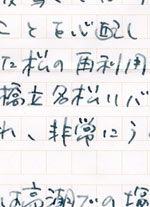 ことを心配し
た松の再利用
橋立名松リバ
れ、非常にう
は高潮での塩